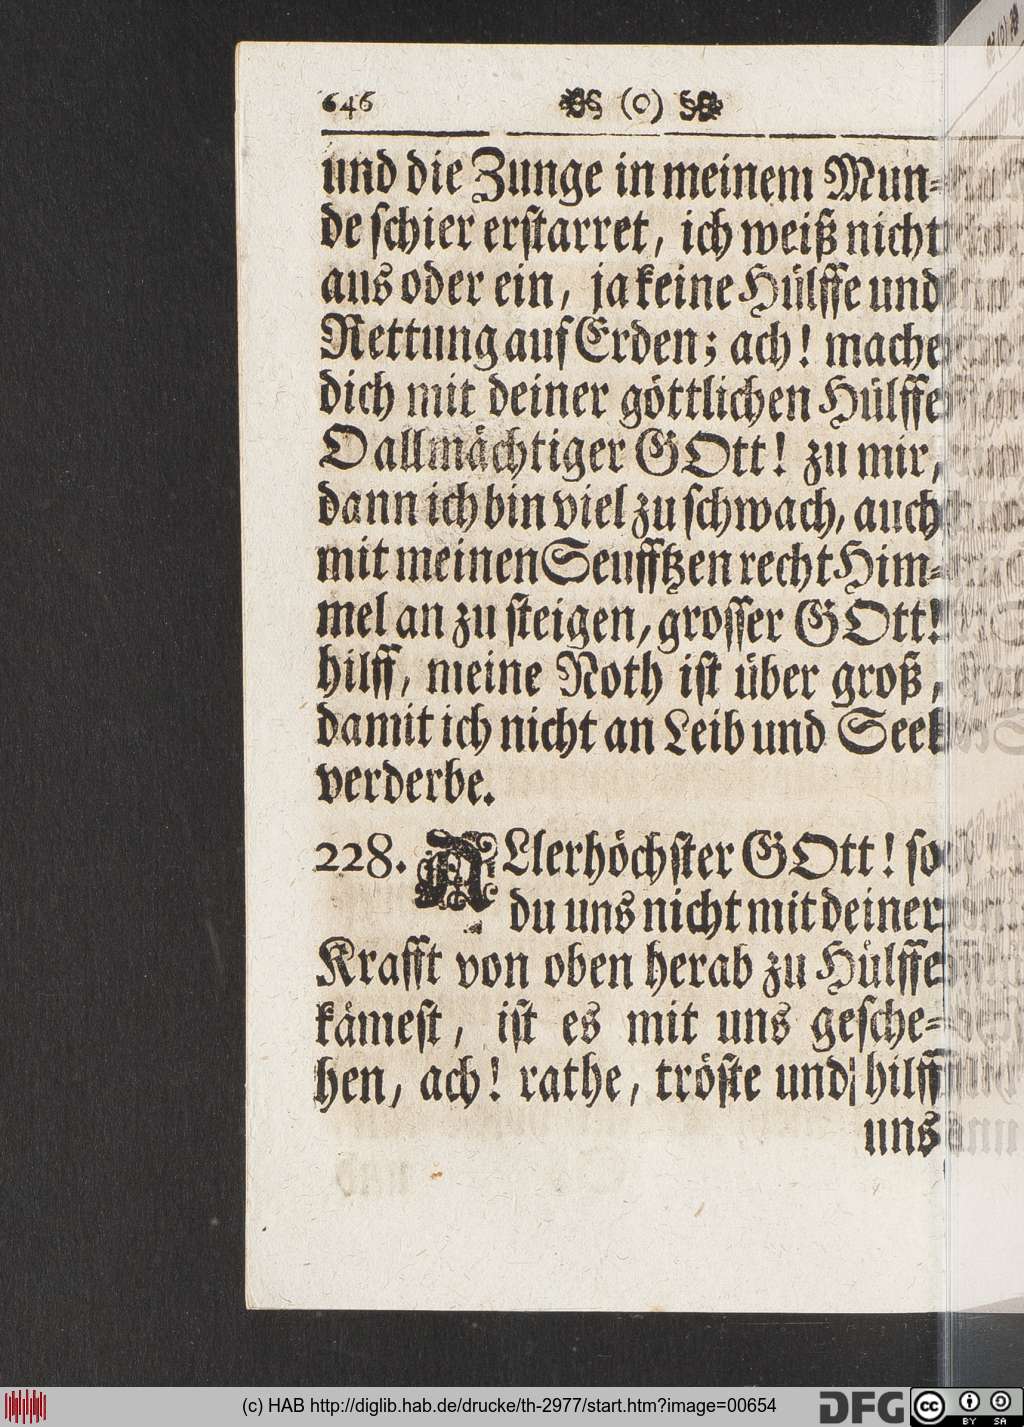 646 (O)
und die Zunge in meinem Mun-
de schier erstarret, ich weiß nicht
aus oder ein, ja keine Hülffe und
Rettung auf Erden; ach! mache
dich mit deiner göttlichen Hülffe
O allmächtiger GOtt! zu mir,
dann ich bin viel zu schwach, auch
mit meinen Seufftzen recht Him-
mel an zu steigen, grosser GOtt!
hilff, meine Noth ist über groß,
damit ich nicht an Leib und Seel
verderbe.
228. ALlerhöchster GOtt! so
du uns nicht mit deiner
Krafft von oben herab zu Hülffe
kämest, ist es mit uns gesche-
hen, ach! rathe, tröste und hilff
uns
(c) HAB http://diglib.hab.de/drucke/th-2977/start.htm?image=00654
DFG cc BY SA